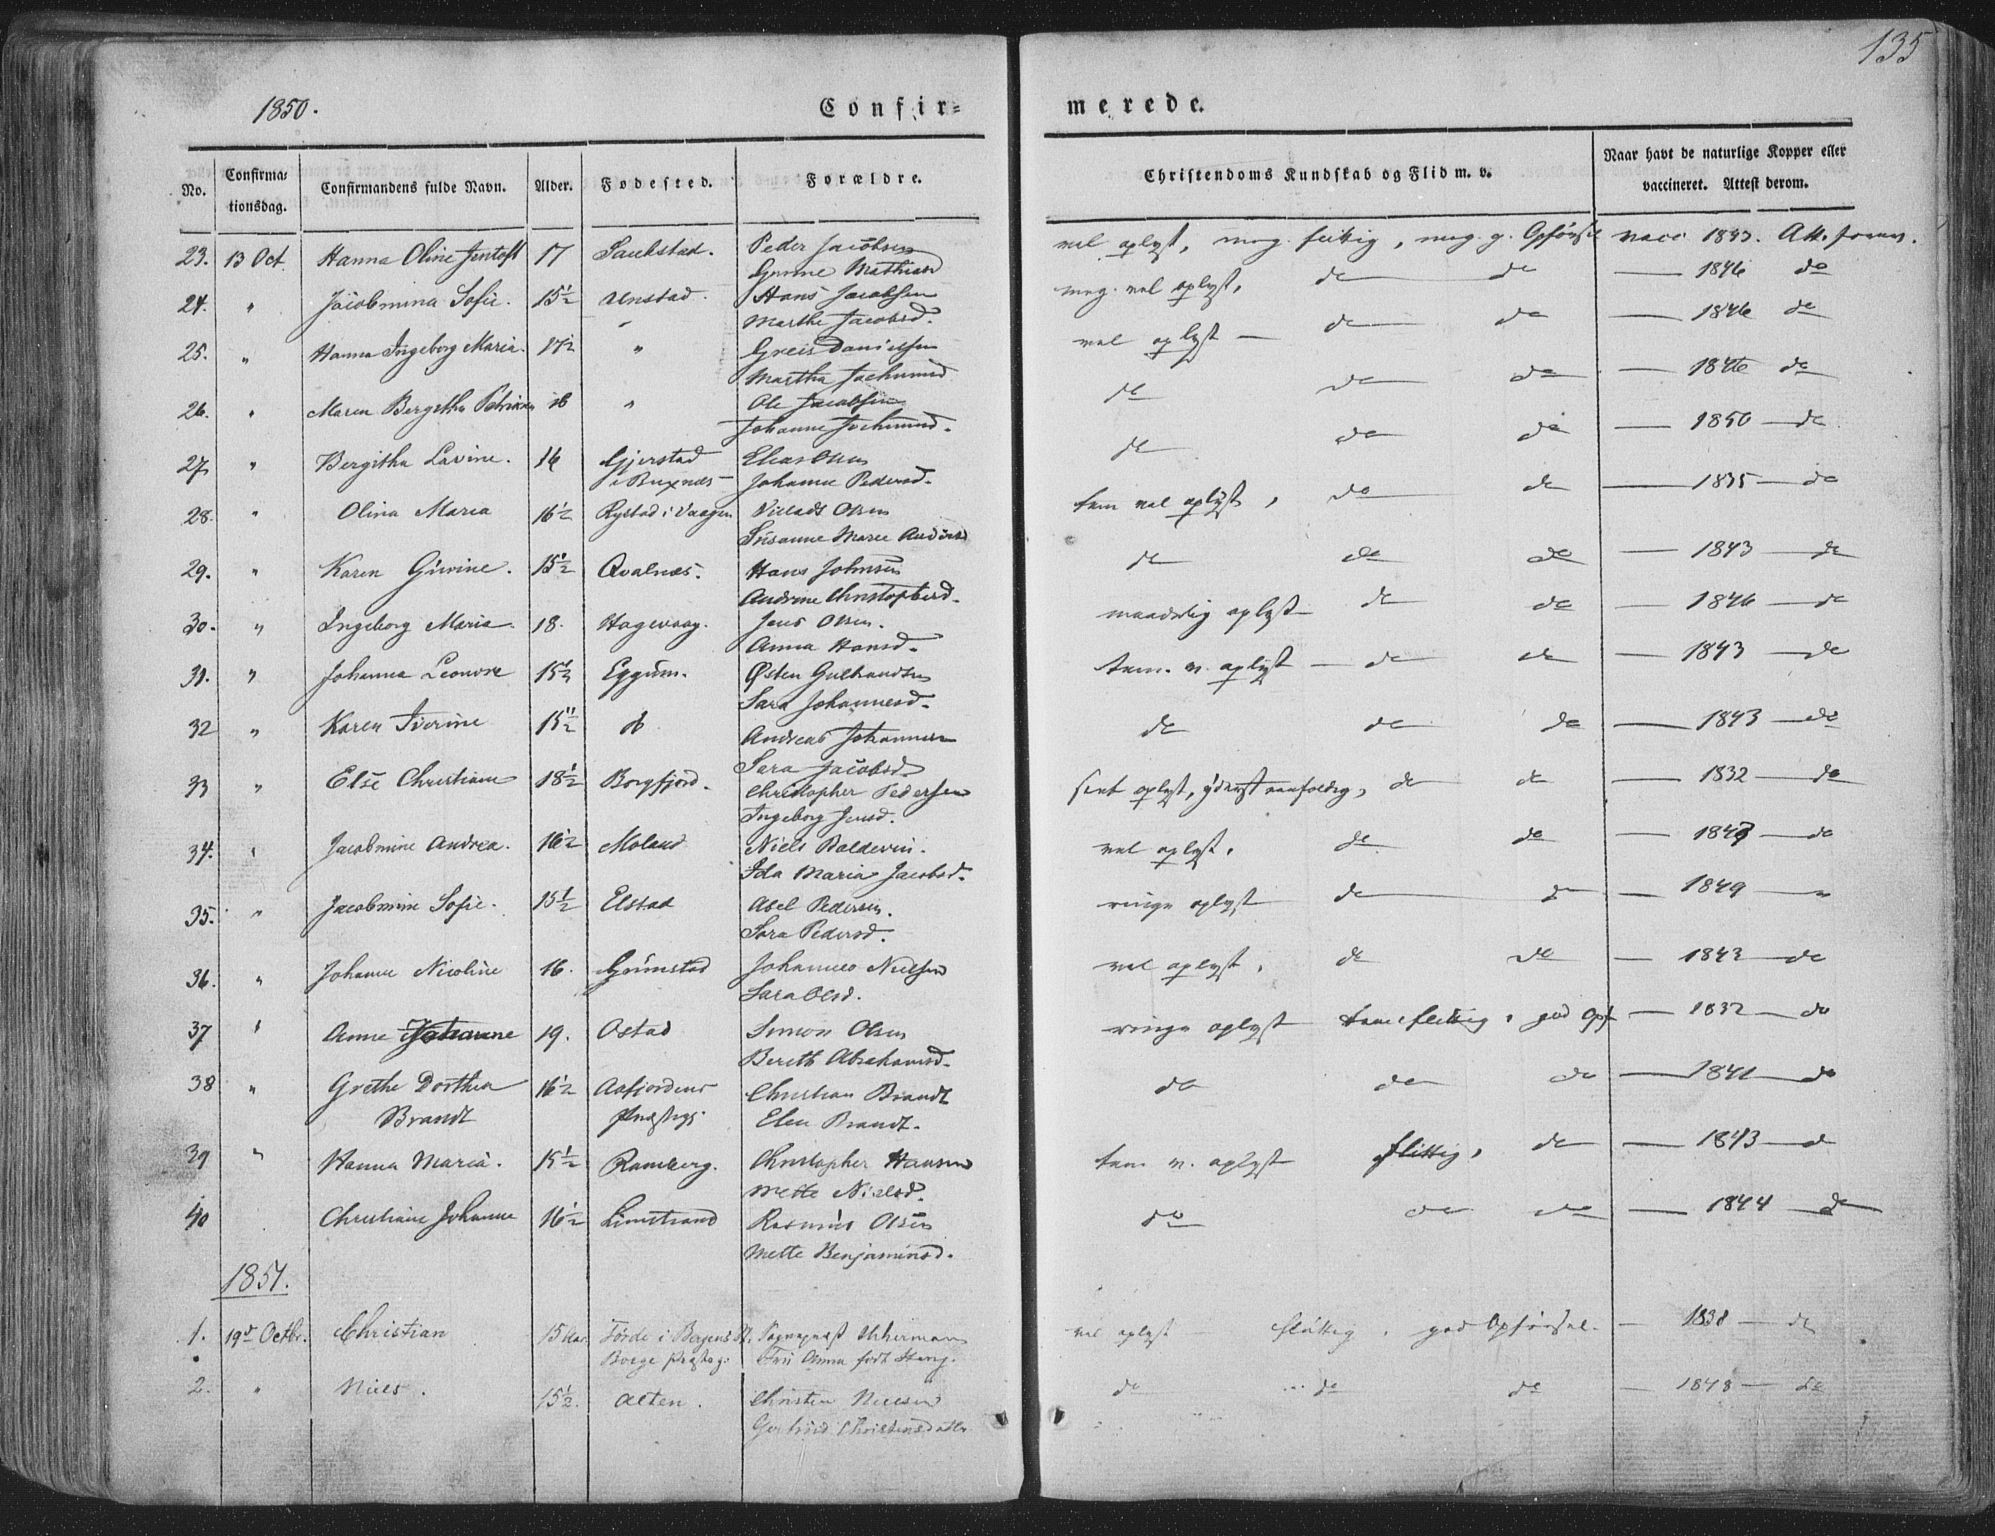 135
1850.
Confir= merede.
No. Confirma= tionsdag. Confirmandens fulde Navn. Alder. Fødested. Forældre. Christendoms Kundskab og Flid m. v. Naar havt de naturlige Kopper eller vaccineret. Attest derom.
23. 13 Oct. Hanna Oline Jentoft 17 Sauhstad. Peder Jacobsen vel oplyst, meg. flittig, meg. g. Opførsel vacc. 1833. Att.
Mathiasd
24. " Jacobmina Sofie. 15½ Unstad. Hans Jacobsen meg. vel oplyst, do do — 1846 do
Marthe Jacobsd.
25. " Hanna Ingeborg Maria. 17½ " Greis Danielsen vel oplyst — do do — 1846 do
Martha Jochumsd
26. " Maren Bergitha 16 " Ole Jacobsen do do do — 1846 do
Johanne Jochumsd.
27. " Bergitha Lavine. 16 Gjerstad Elias Olsen do do do — 1850 — do
i Buxnæs Johanne Pedersd.
28. " Olina Maria 16½ Rystad i Vaagen Olsen tem vel oplyst, do do — 1835 — do
Susanne Marie
29. " Karen 15½ Qvalnæs. Hans Johnsen do do do — 1843 — do
Andrine Christophersd.
30. " Ingeborg Maria 18. Hagevaag. Jens Olsen. maadelig oplyst do do — 1846 — do
Anna Hansd.
31. " Johanna Leonore 15½ Eggum. Østen tem. v. oplyst — do do — 1843 — do
Sara Johannesd.
32 " Karen Iverine 15½ do Andreas Johannesen do do do — 1843 — do
Sara Jacobsd.
33 " Else Christiane 18½ Borgfjord. Christopher Pedersen oplyst, do do — 1832 — do
Ingeborg Jensd.
34. " Jacobmine Andrea. 16½ Moland Niels Baldevin. vel oplyst. do do — 1843 — do
Ida Maria Jacobsd.
35. " Jacobmine Sofie. 15½ Elstad Abel Pedersen. ringe oplyst do do — 1849 — "
Sara Pedersd.
36. " Johanne Nicoline 16. Grimstad Johannes Nielsen vel oplyst, do do — 1843 — do
Sara Olsd.
37 " Anne Johanne 19. Ostad Simon Olsen ringe oplyst tem: flittig, god Opf — 1832 — do
Bereth Abrahamsd.
38 " Grethe Dorthea 16½ Aafjordens Christian Brandt do do do — 1841 — do
Brandt Præstegj. Elen Brandt.
39 " Hanna Maria. 15½ Ramberg. Christopher Hansen tem v. oplyst flittig, do — 1843 — do
Mette Nielsd.
40 Christiane Johanne 16½ Limstrand Rasmus Olsen do do do — 1844 — do
Mette Benjaminsd.
1851.
1. 19d Octbr. Christian 15 Førde i Bergens St. Sognepræst vel oplyst — flittig, god Opførsel. — 1838 — do
Borge Præsteg. Fru Anna født
2. " Niels. 15½. Alten. Christen Nielsen do do do — 1848 — do
Gertrud Christensdatter